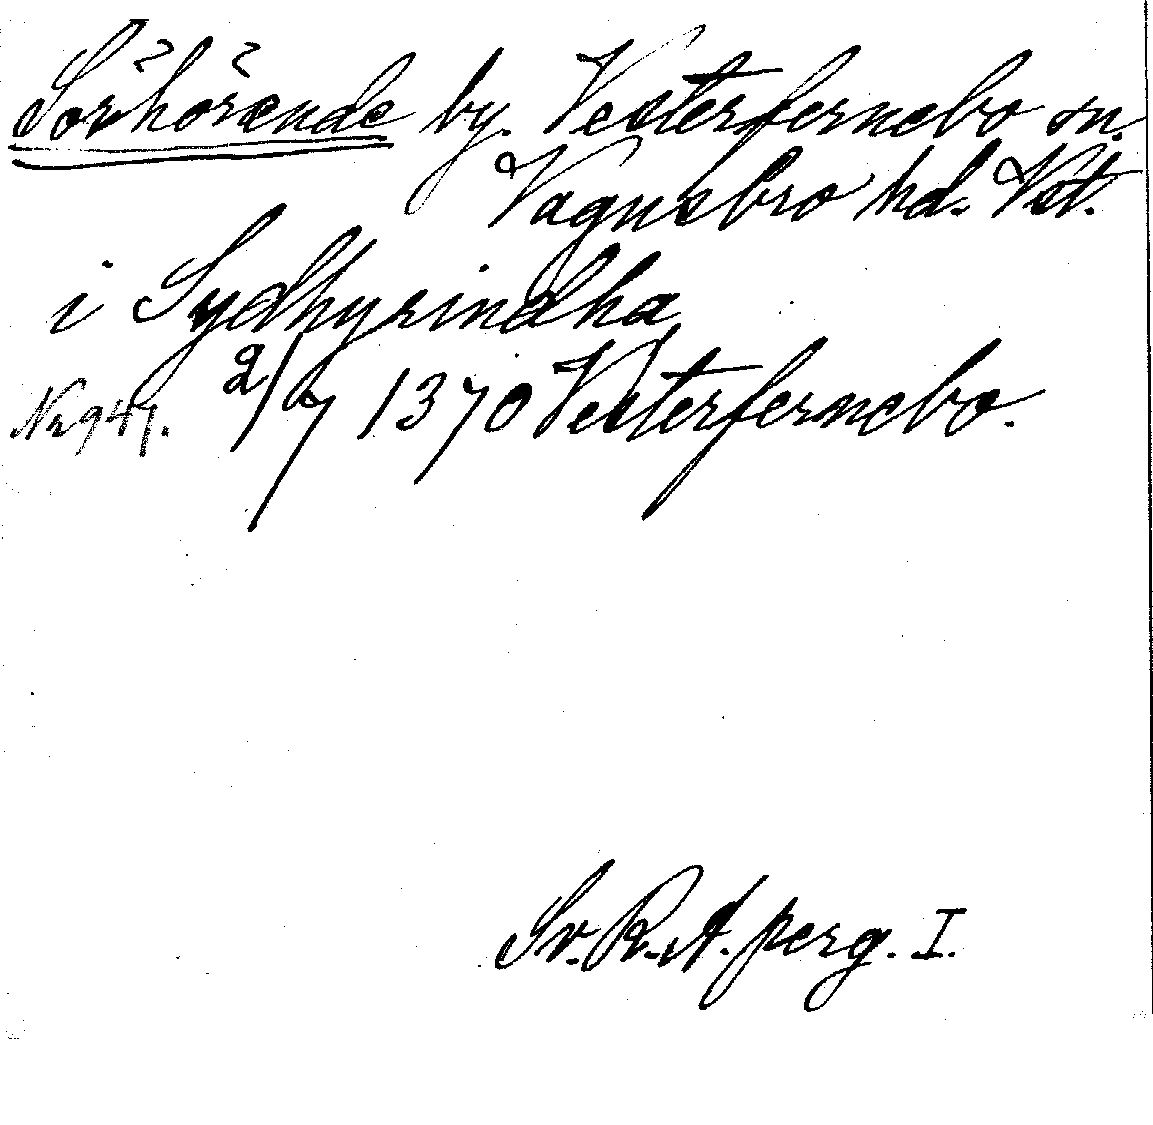 Sörhörende by. Vesterfernebo sn.
Vagnsbro hd. Vst.
i Sydhyrindha
Nr 941. 2/7 1370 Vesterfernebo.
Sv. R. A. perg. I.